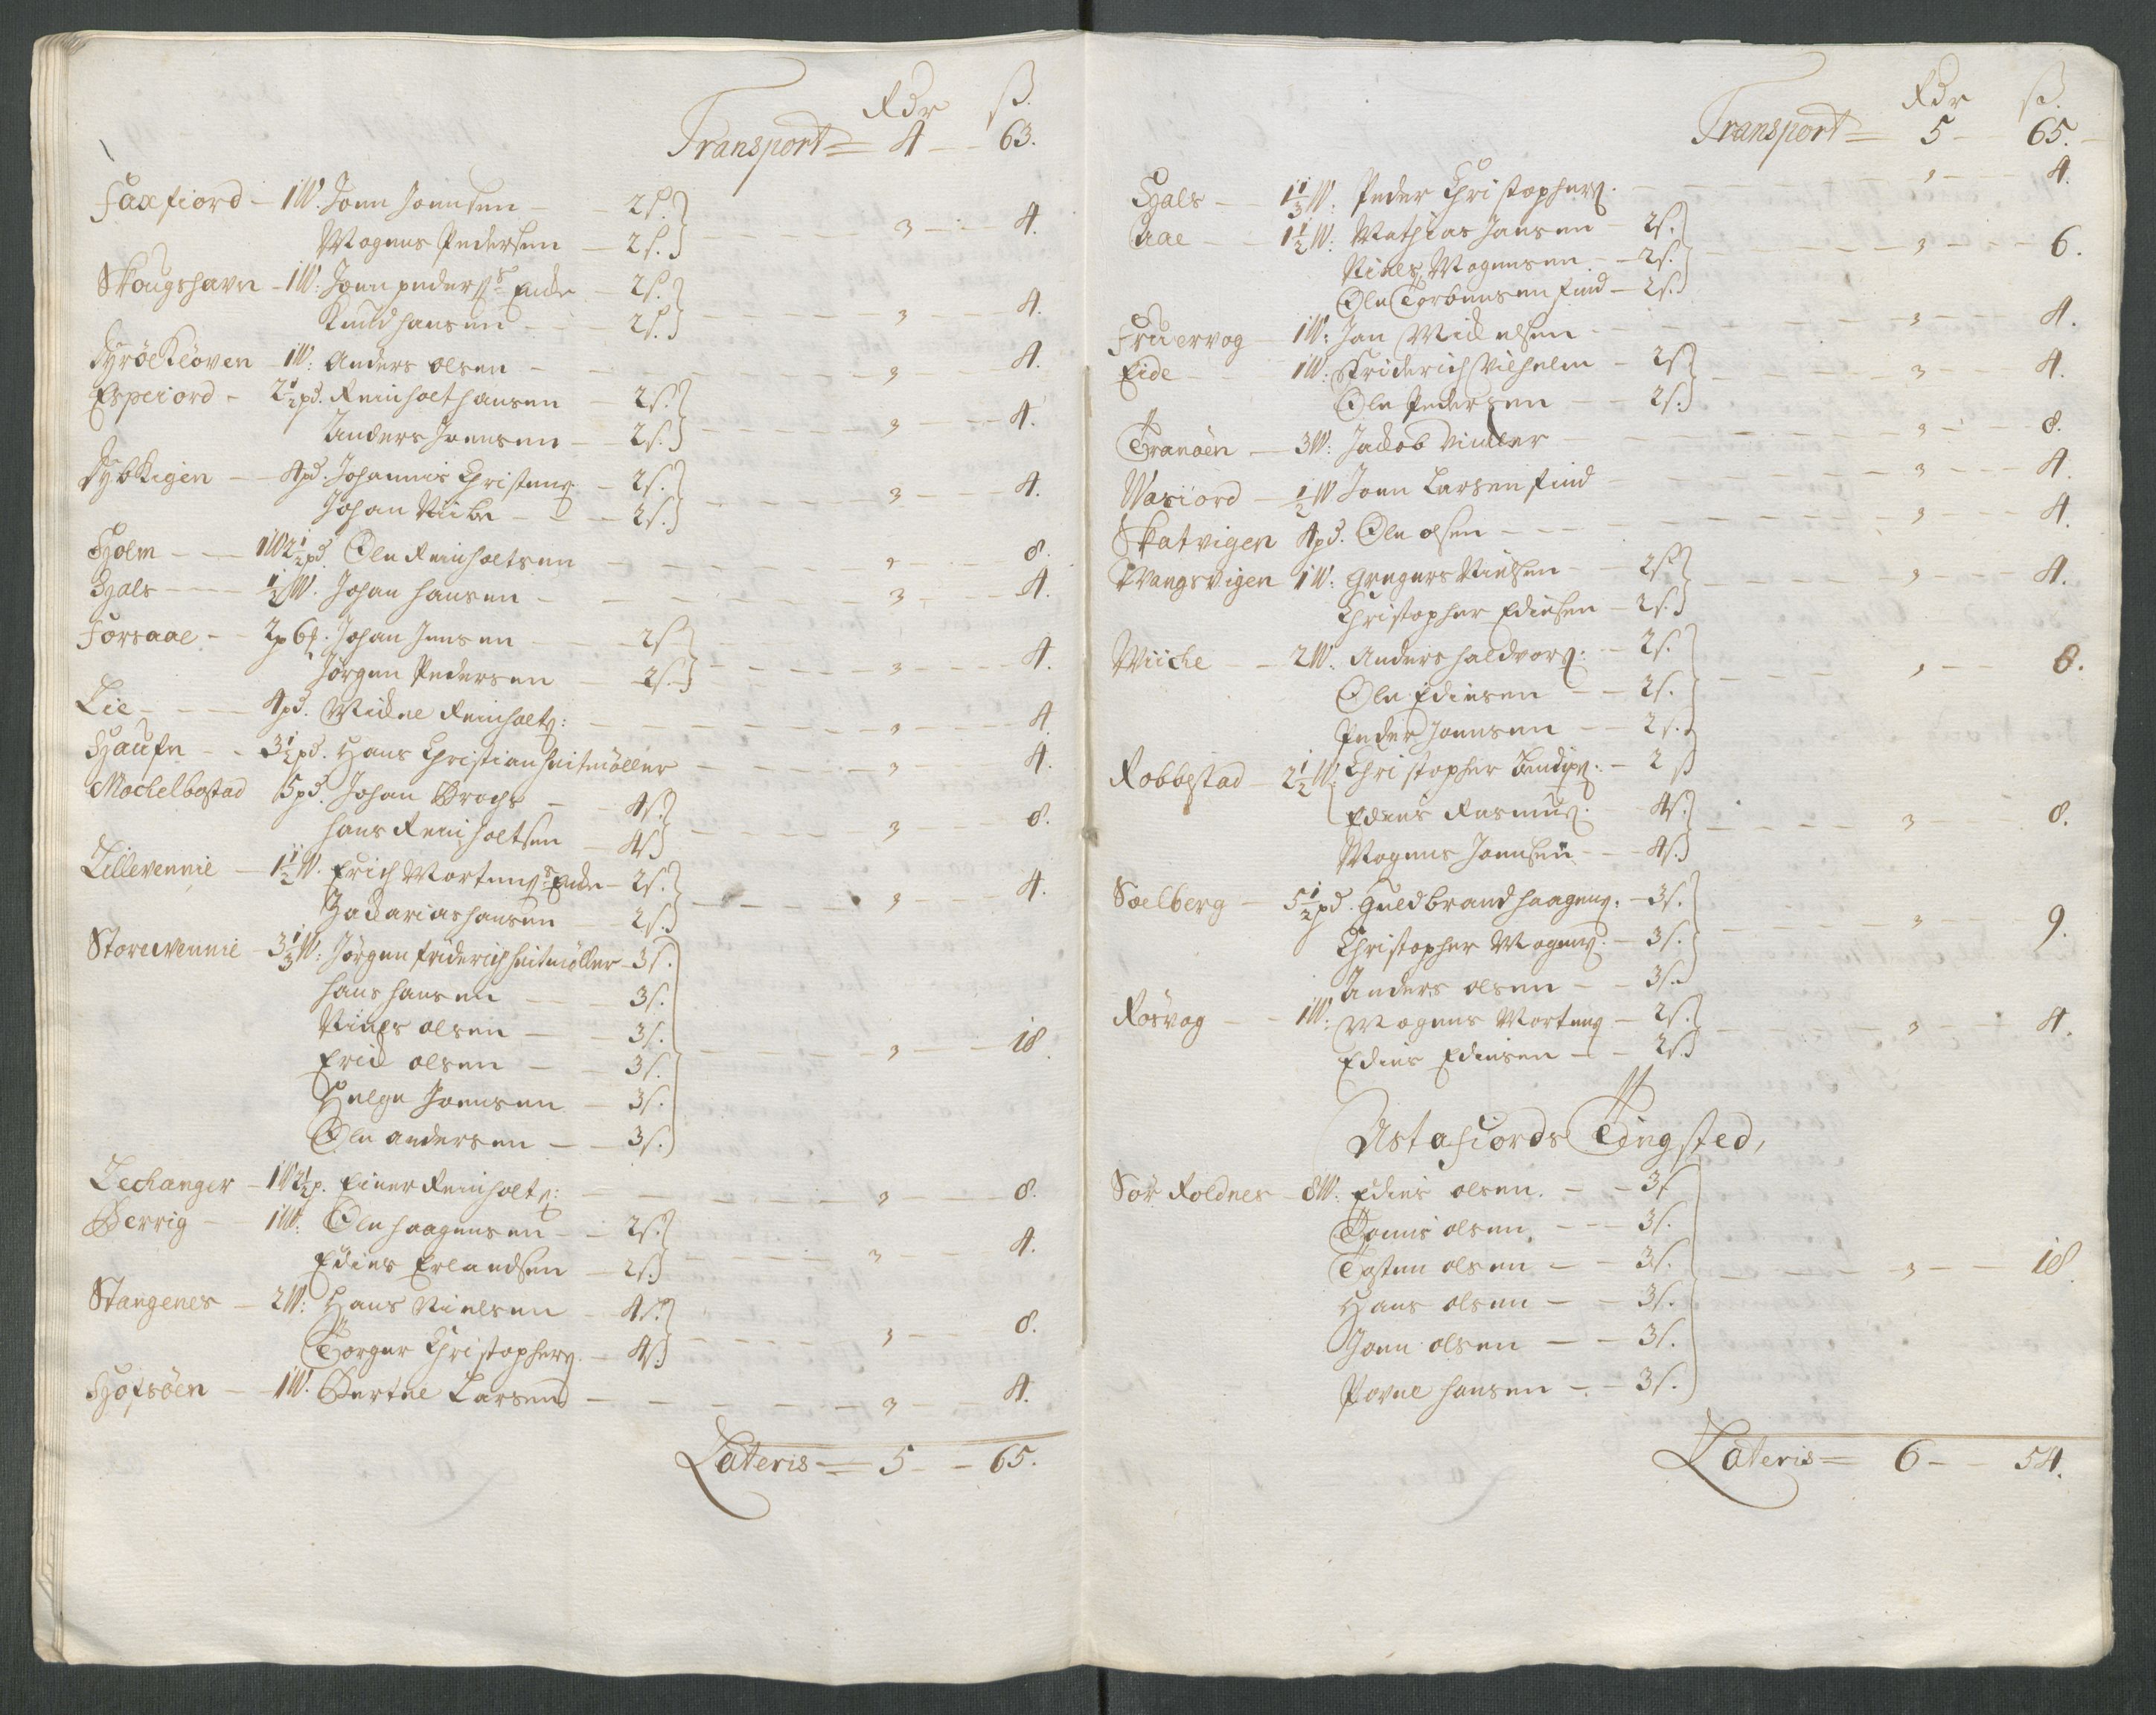 Rdr ß.
Transport = 4 - - 63.
Faxfiord - 1W. Joen Joensen - 2ß.
Mogens Pedersen - 2ß. } - - - 3 - - 4.
Skougshavn - 1W: Joen peders: Encke - 2ß.
Knud hansen - - 2ß. } - - - 3 - - 4.
Dyröe Klöven - 1W: Anders olsen - - - 3 - - 4.
Espeiord - 2½pd. Reinholt hansen - 2ß.
Anders Joensen - 2ß. } - - - 3 - - 4.
Dybvigen - 4pd. Johannis Christens: - 2ß.
Johan Riibe - - 2ß. } - - - 3 - - 4.
Holm - - 1W 2½pd. Ole Reinholtsen - - - 3 - - 8.
Hals - - ½W. Johan hansen - - - 3 - - 4.
Forsaae - - 2p 6 Johan Jensen - 2ß
Jörgen Pedersen - 2ß. } - - - 3 - - 4.
Lie - - - 4pd. Mickel Reinholts: - - - 3 - - 4.
Haufn - - 3½pd. Hans Christian heitmöller - - 3 - - 4.
Mochelbostad 5pd. Johan Brochs - 4ß.
hans Reinholtsen - 4ß } - - - 3 - - 8.
Lillevennie - 1½W. Erich Mortens: Encke - 2ß.
Zacarias hansen - 2ß. } - - - 3 - - 4.
Storevennie - 3⅓W: Jörgen friderich heitmöller - 3ß.
hans hansen - - 3ß.
Niels olsen - - 3ß.
Erick olsen - - 3ß. } - - - 3 - - 18.
Helge Joensen - 3ß.
Ole andersen - - 3ß.
Lechanger - 1W 2½p. Einer Reinholts: - - - 3 - - 8.
Berrig - - 1W: Ole haagensen - - 2ß.
Edies Erlandsen - 2ß. } - - - 3 - - 4.
Stangenes - 2W: Hans Nielsen - 4ß.
Törger Christophers: - 4ß } - - - 3 - - 8.
Hofsöen - - 1W. Bertel Larsen - - - 3 - - 4.
Lateris = 5 - - 65.
Rdr ß.
Transport = 5 - 65. -
Hals - - 1⅓W. Peder Christophers: - - - 3 - - 4.
Aae 1½W: Mathias Jansen - 2ß.
Niels Mogensen - 2ß. } - - - 3 - - 6.
Ole Torbensen find - 2ß.
Fruervog - 1W: Jan Mickelsen - - - 3 - - 4.
Eide - - 1W: friderich Vilhelm - 2ß
Ole Pedersen - - 2ß. } - - - 3 - - 4.
Tranöen - 3W: Jackob Vinter - - - 3 - - 8.
Wasiord - ½W Joen Larsen find - - - 3 - - 4.
Skatvigen 4pd. Ole olsen - - - 3 - - 4.
Wangsvigen 1W: Gregers Nielsen - - 2ß
Christopher Ediesen - 2ß. } - - - 3 - - 4.
Wiiche - 2W. Anders haldvors: - 2ß.
Ole Ediesen - - 2ß. } - - - 3 - - 8.
Peder Joensen - - 2ß.
Robbestad - 2½W: Christopher - 2 ß
Edies Rasmus: - 4ß.
Mogens Joensen - - 4ß. } - - - 3 - 8.
Soelberg - 5½pd. Guldbrand haagens: - 3ß.
Christopher Mogens: - 3ß. } - - - 3 - - 9.
Anders olsen - - 3ß.
Rösvog - - 1W: Mogens Mortens: - 2ß.
Edies Ediesen - - 2ß. } - - - 3 - - 4.
Astafiords Tingsted,
Sör Roldnes - 8W: Edies olsen. - - 3ß
Tomis olsen. - - - 3ß.
Tosten olsen - - 3ß.
Hans olsen - - 3ß. } - - - 3 - - 18.
Joen olsen - - 3ß.
Povel hansen - - 3ß.
Lateris = 6 - - 54.